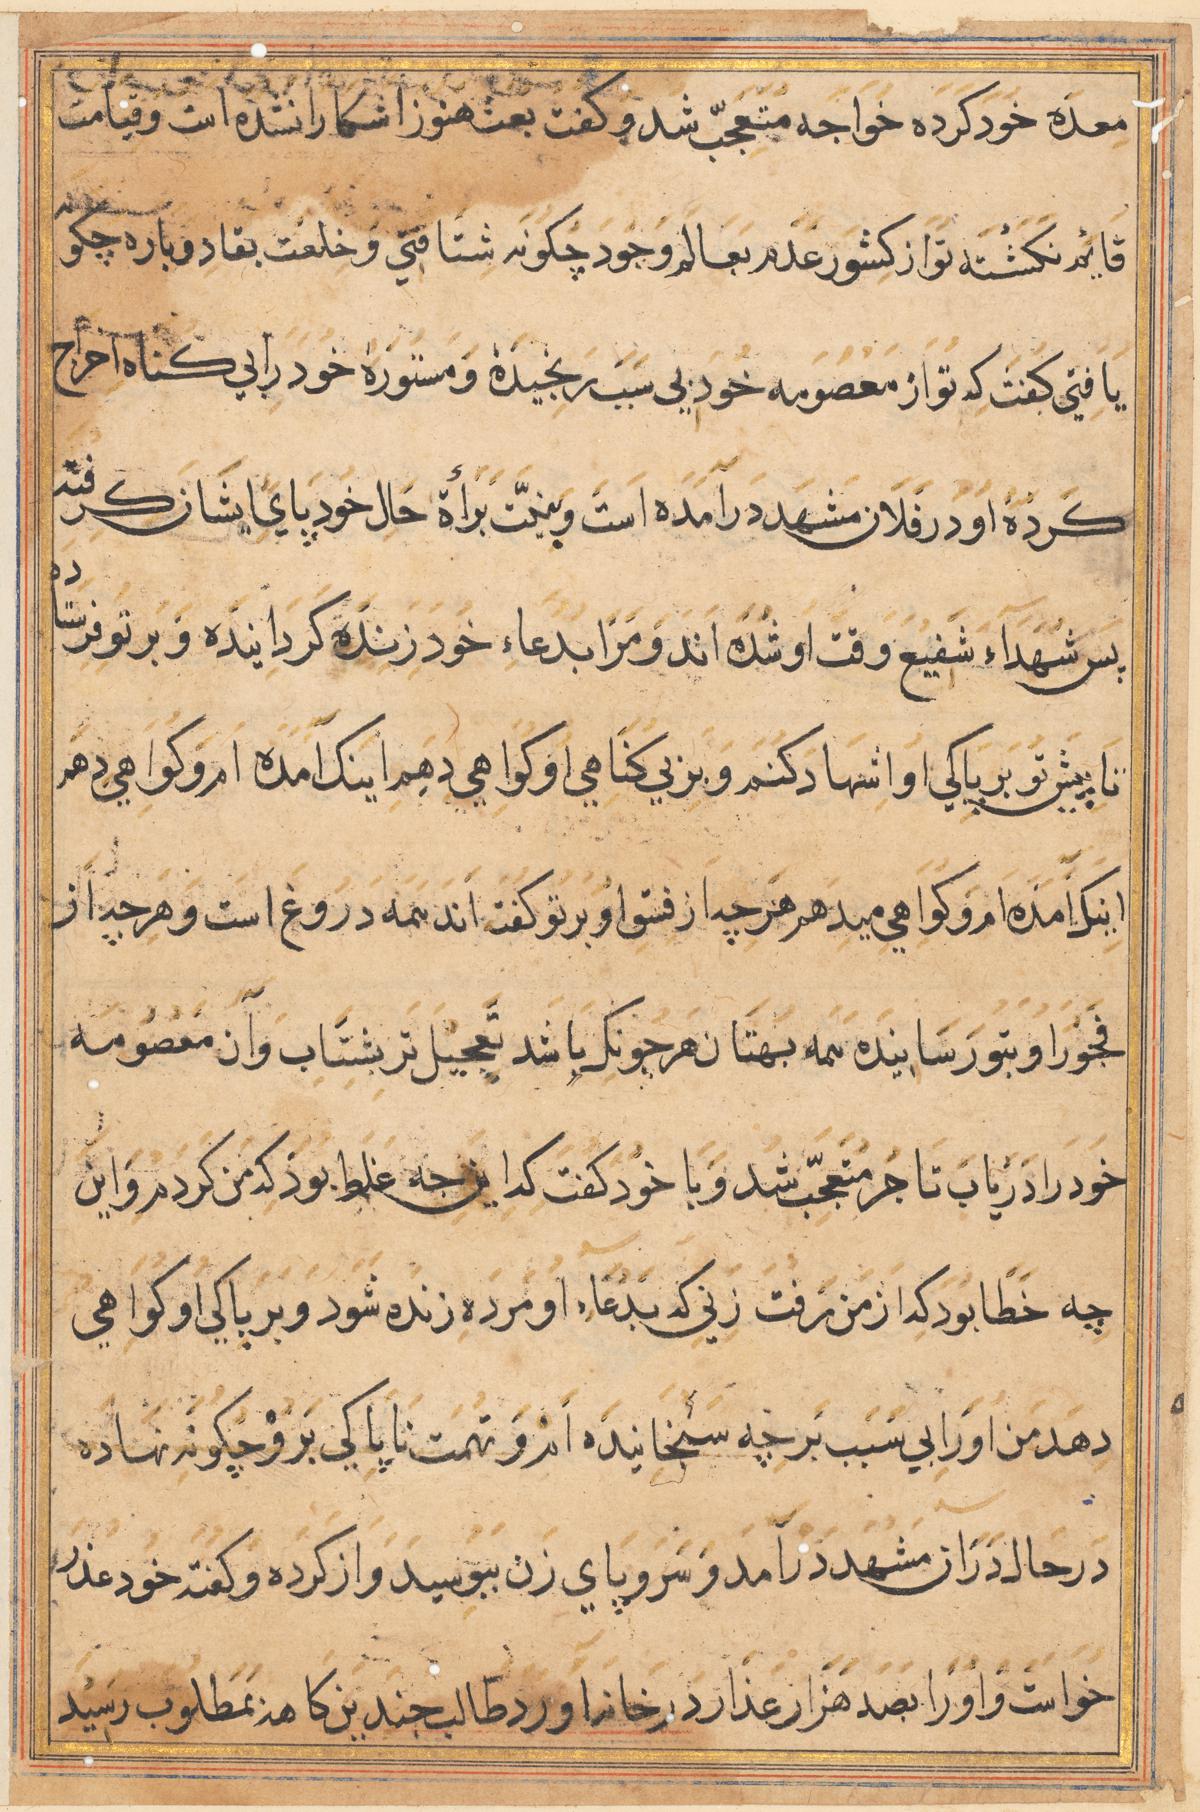 معده خود کرده خواجه متعجّب شد و کفت بعث هنوز اشکارا نشده است و قیامت
قایم نکشته تو از کشور عدم بعالم وجود چکونه شتافتی و خلعت بقا دوباره چکونه
یافتی کفت که تو از معصومه خود بی سبب رنجیدهٔ و مستورهٔ خود را بی کناه اخراج
کردهٔ او در فلان مشهد درآمده است و بنیّت برأة حال خود پای ایشان کرفته
پس شهداء شفیع وقت او شده اند و مرا بدعاء خود زنده کردانیده و بر تو فرستاده
تا پیش تو بر پاکی او اشهاد کنم و بر بی کناهی او کواهی دهم اینک آمده ام و کواهی دهم
اینک آمده ام و کواهی میدهم هرچه از فسق او بر تو کفته اند همه دروغ است و هرچه از
فجور او بتو رسانیده همه بهتان هرچونک باشد تعجیل تر بشتاب و آن معصومه
خود را دریاب تاجر متعجّب شد و با خود کفت که این چه غلط بود که من کردم و این
چه خطا بود که از من رفت زنی که بدعاء او مرده زنده شود و بر پاکی او کواهی
دهد من او را بی سبب بر چه سنجانیده ام و تهمت ناپاکی بر و چکونه نهاده
در حال دران مشهد درآمد و سر و پای زن ببوسید و از کرده و کفته خود عذر
خواست و او را بصد هزار عذار در خانه اورد طالب چندین کاهه بمطلوب رسید